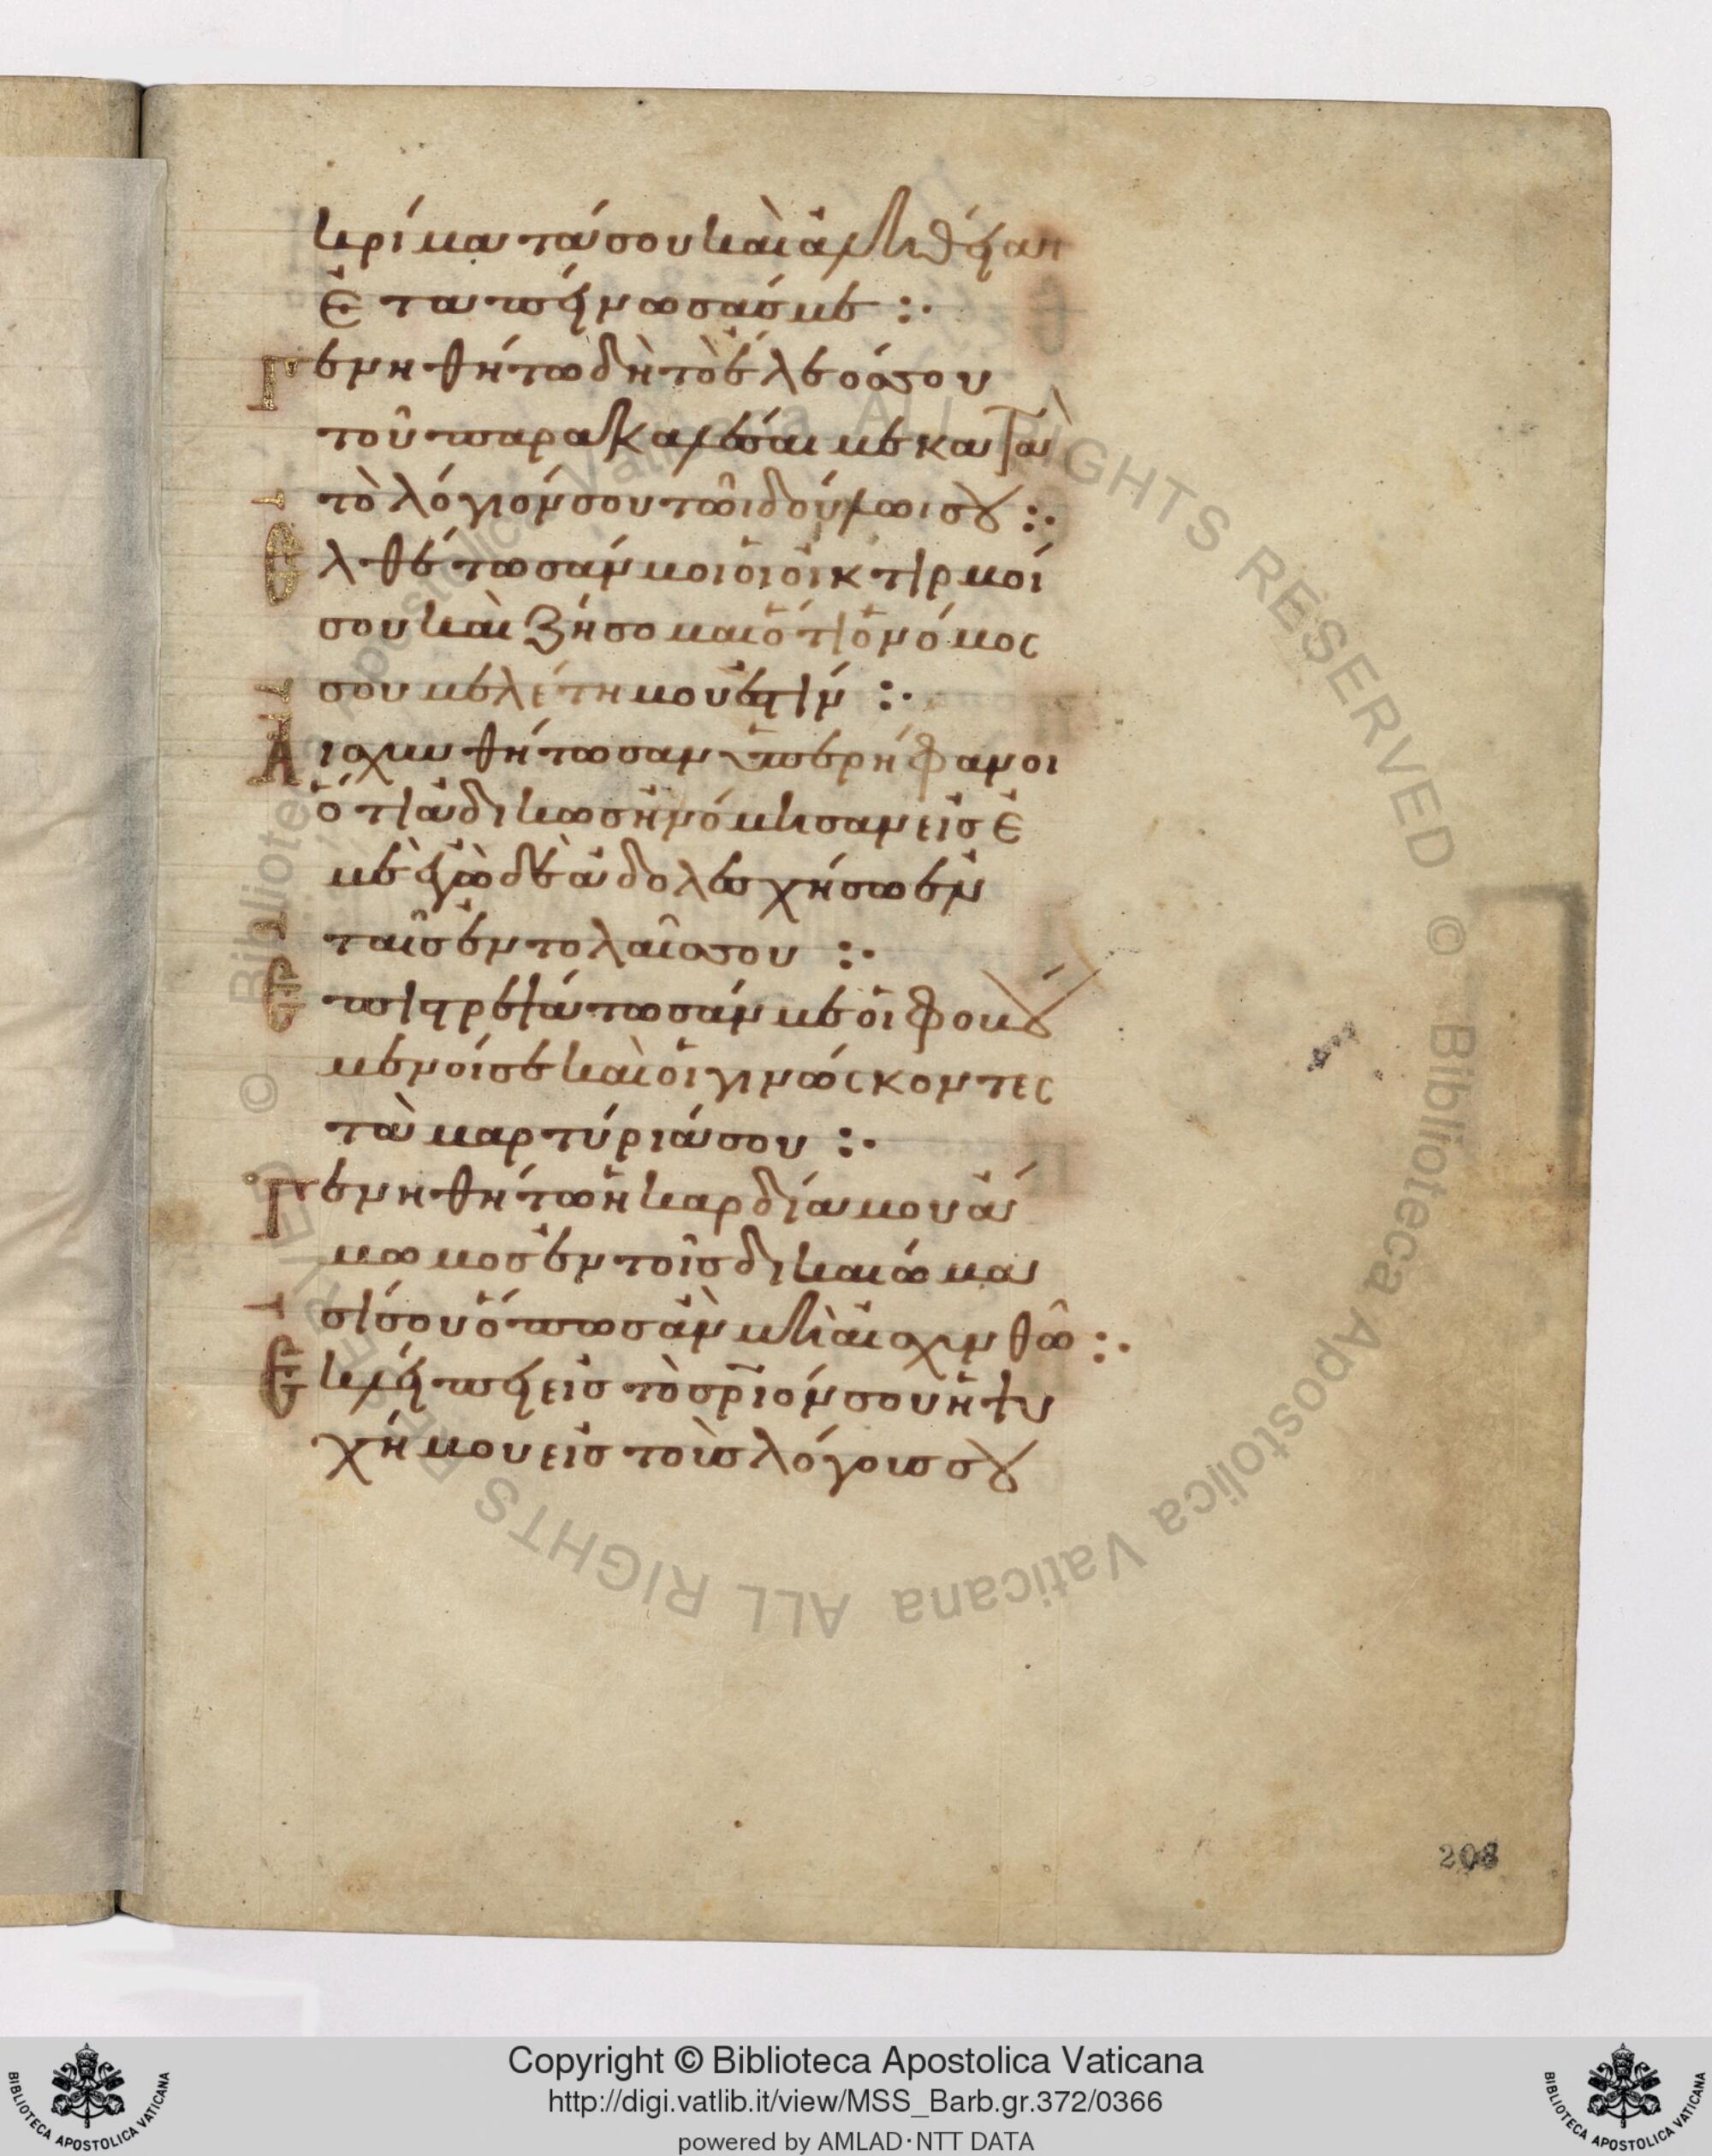 κρίματά σου καὶ ἀληθείᾳ ἐτ
εταπείνωσάς με :·
Γενηθήτω δὴ τὸ ἔλεός σου
τοῦ παρακαλέσαι με κατὰ
τὸ λόγιόν σου τῶι δούλωι σου :·
Ἐλθέτωσάν μοι οἱ οἰκτιρμοί
σου καὶ ζήσομαι ὅτι ὁ νόμος
σου μελέτη μού ἐστιν :·
Αἰσχυνθήτωσαν ὑπερήφανοι
ὅτι ἀδίκως ἠνόμησαν εἰς ἐ
μὲ ἐγὼ δὲ ἀδολεσχήσω ἐν
ταῖς ἐντολαῖς σου :·
Ἐπιστρεψάτωσάν με οἱ φοβού
μενοί σε καὶ οἱ γινώσκοντες
τὰ μαρτύριά σου :·
Γενηθήτω ἡ καρδία μου ἄ
μωμος ἐν τοῖς δικαιώμα
σί σου ὅπως ἂν μὴ αἰσχυνθῶ :·
Ἐκλείπει εἰς τὸ σριόν σου ἡ ψυ
χή μου εἰς τοὺς λόγους σου
208
Copyright © Biblioteca Apostolica Vaticana
http://digi.vatlib.it/view/MSS_Barb.gr.372/0366
powered by AMLAD·NTT DATA